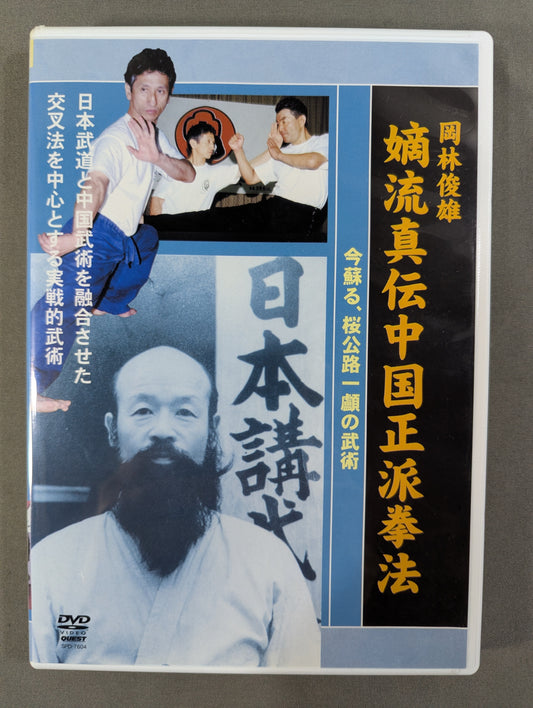 岡林俊雄
嫡流真伝中国正派拳法
今蘇る、桜公路一顱の武術
日本武道と中国武術を融合させた
交叉法を中心とする実戦的武術
日本講武
DVD
VIDEO
QUEST
SPD-7604